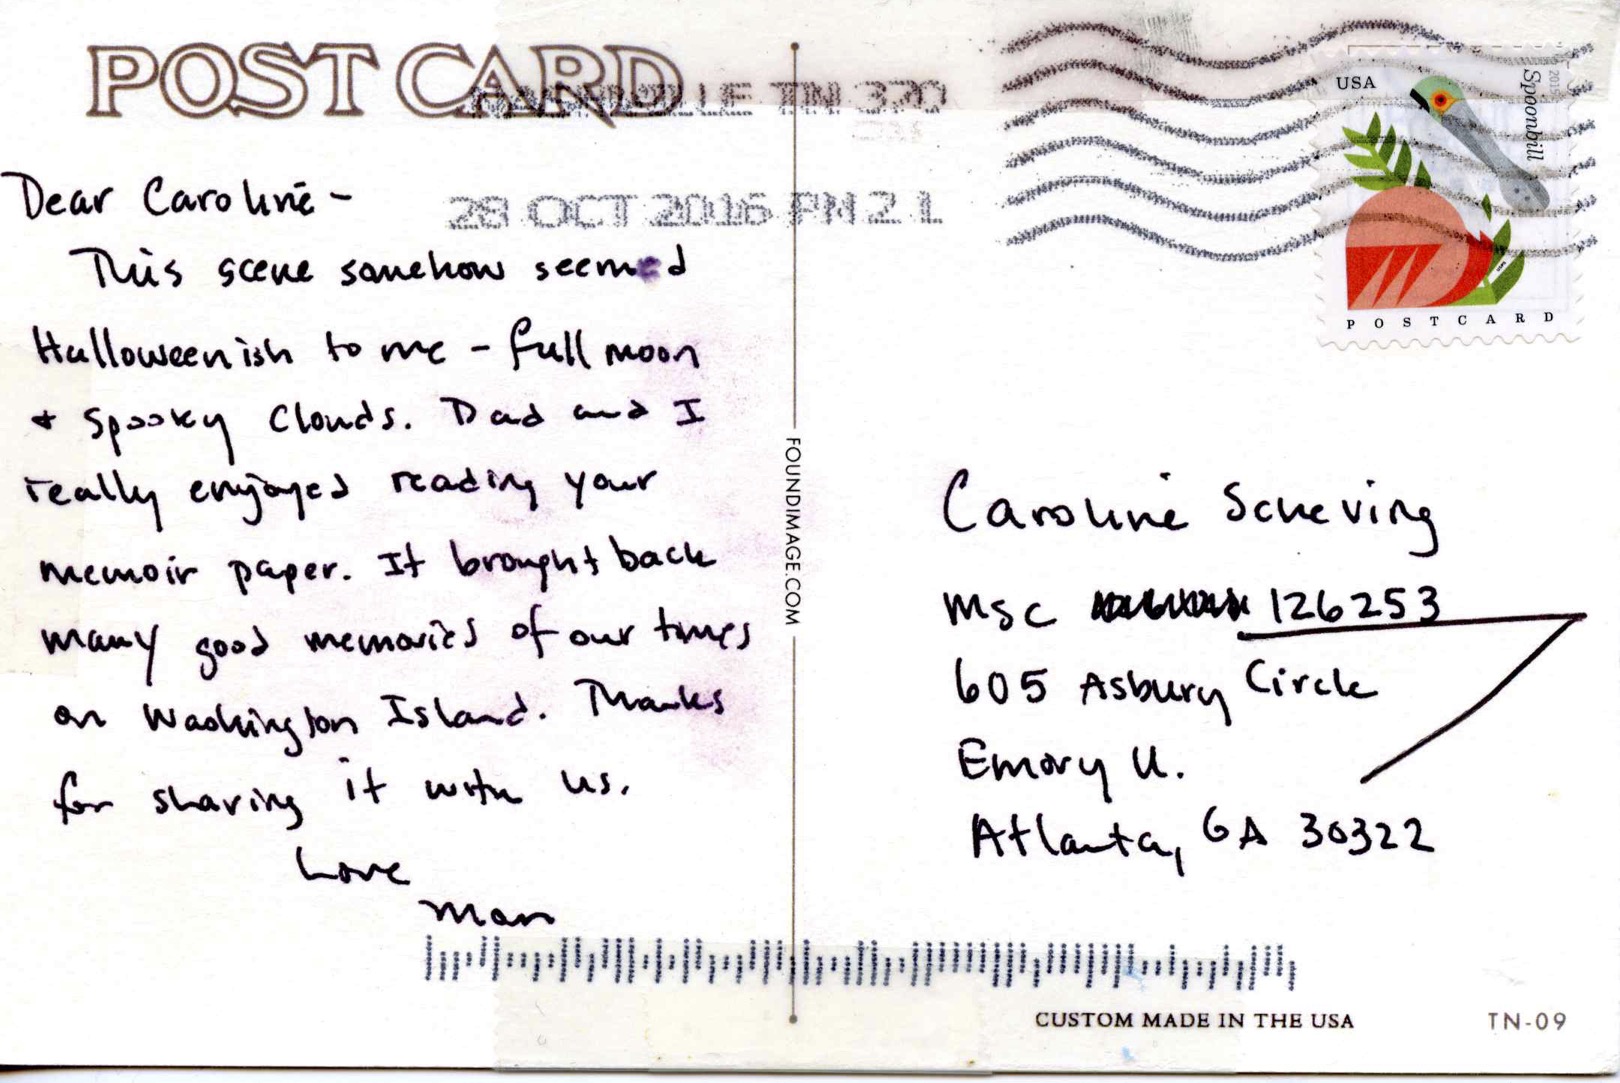 POST CARD
NASHVILLE TN 370
28 OCT 2016 PM 2 L
USA
Spoonbill
2015
POSTCARD
Dear Caroline -
This scene somehow seemed
Halloweenish to me - full moon
+ spooky clouds. Dad and I
really enjoyed reading your
memoir paper. It brought back
many good memories of our times
on Washington Island. Thanks
for sharing it with us.
Love
Mom
FOUNDIMAGE.COM
Caroline Scheving
MSC 126253
605 Asbury Circle
Emory U.
Atlanta, GA 30322
CUSTOM MADE IN THE USA
TN-09